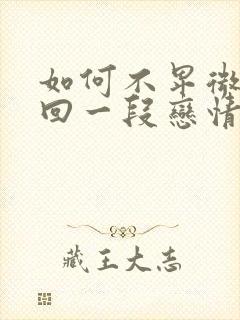 如何不卑微
回一段戀情
藏王大志